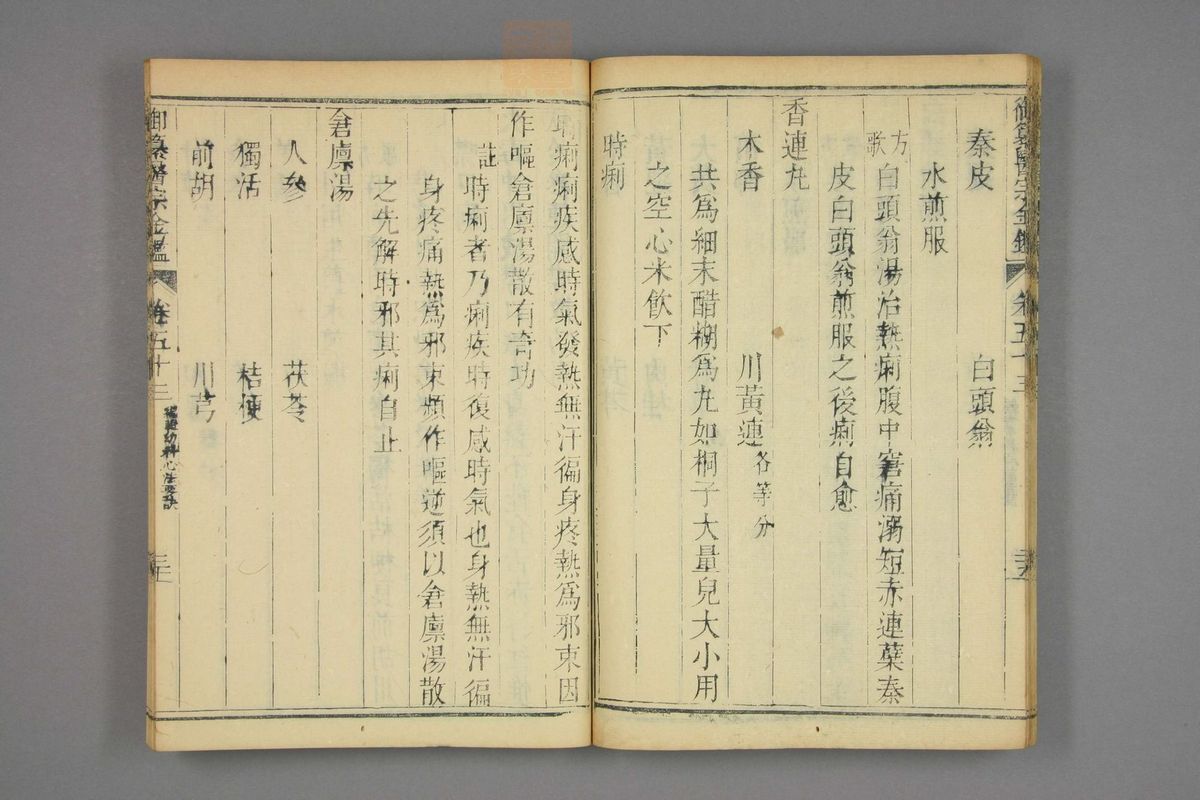 秦皮 白頭翁
水煎服
方歌 白頭翁湯治熱痢腹中窘痛溺短赤連蘗秦
皮白頭翁煎服之後痢自愈
香連丸
木香 川黃連各等分
共爲細末醋糊爲丸如桐子大量兒大小用
之空心米飲下
時痢
時痢痢疾感時氣發熱無汗徧身疼熱爲邪束因
作嘔倉廩湯散有奇功
註 時痢者乃痢疾時復感時氣也身熱無汗徧
身疼痛熱爲邪束頻作嘔逆須以倉廩湯散
之先解時邪其痢自止
倉廩湯
人參 茯苓
獨活 桔梗
前胡 川芎
御纂醫宗金鑑 卷五十三 編輯幼科心法要訣